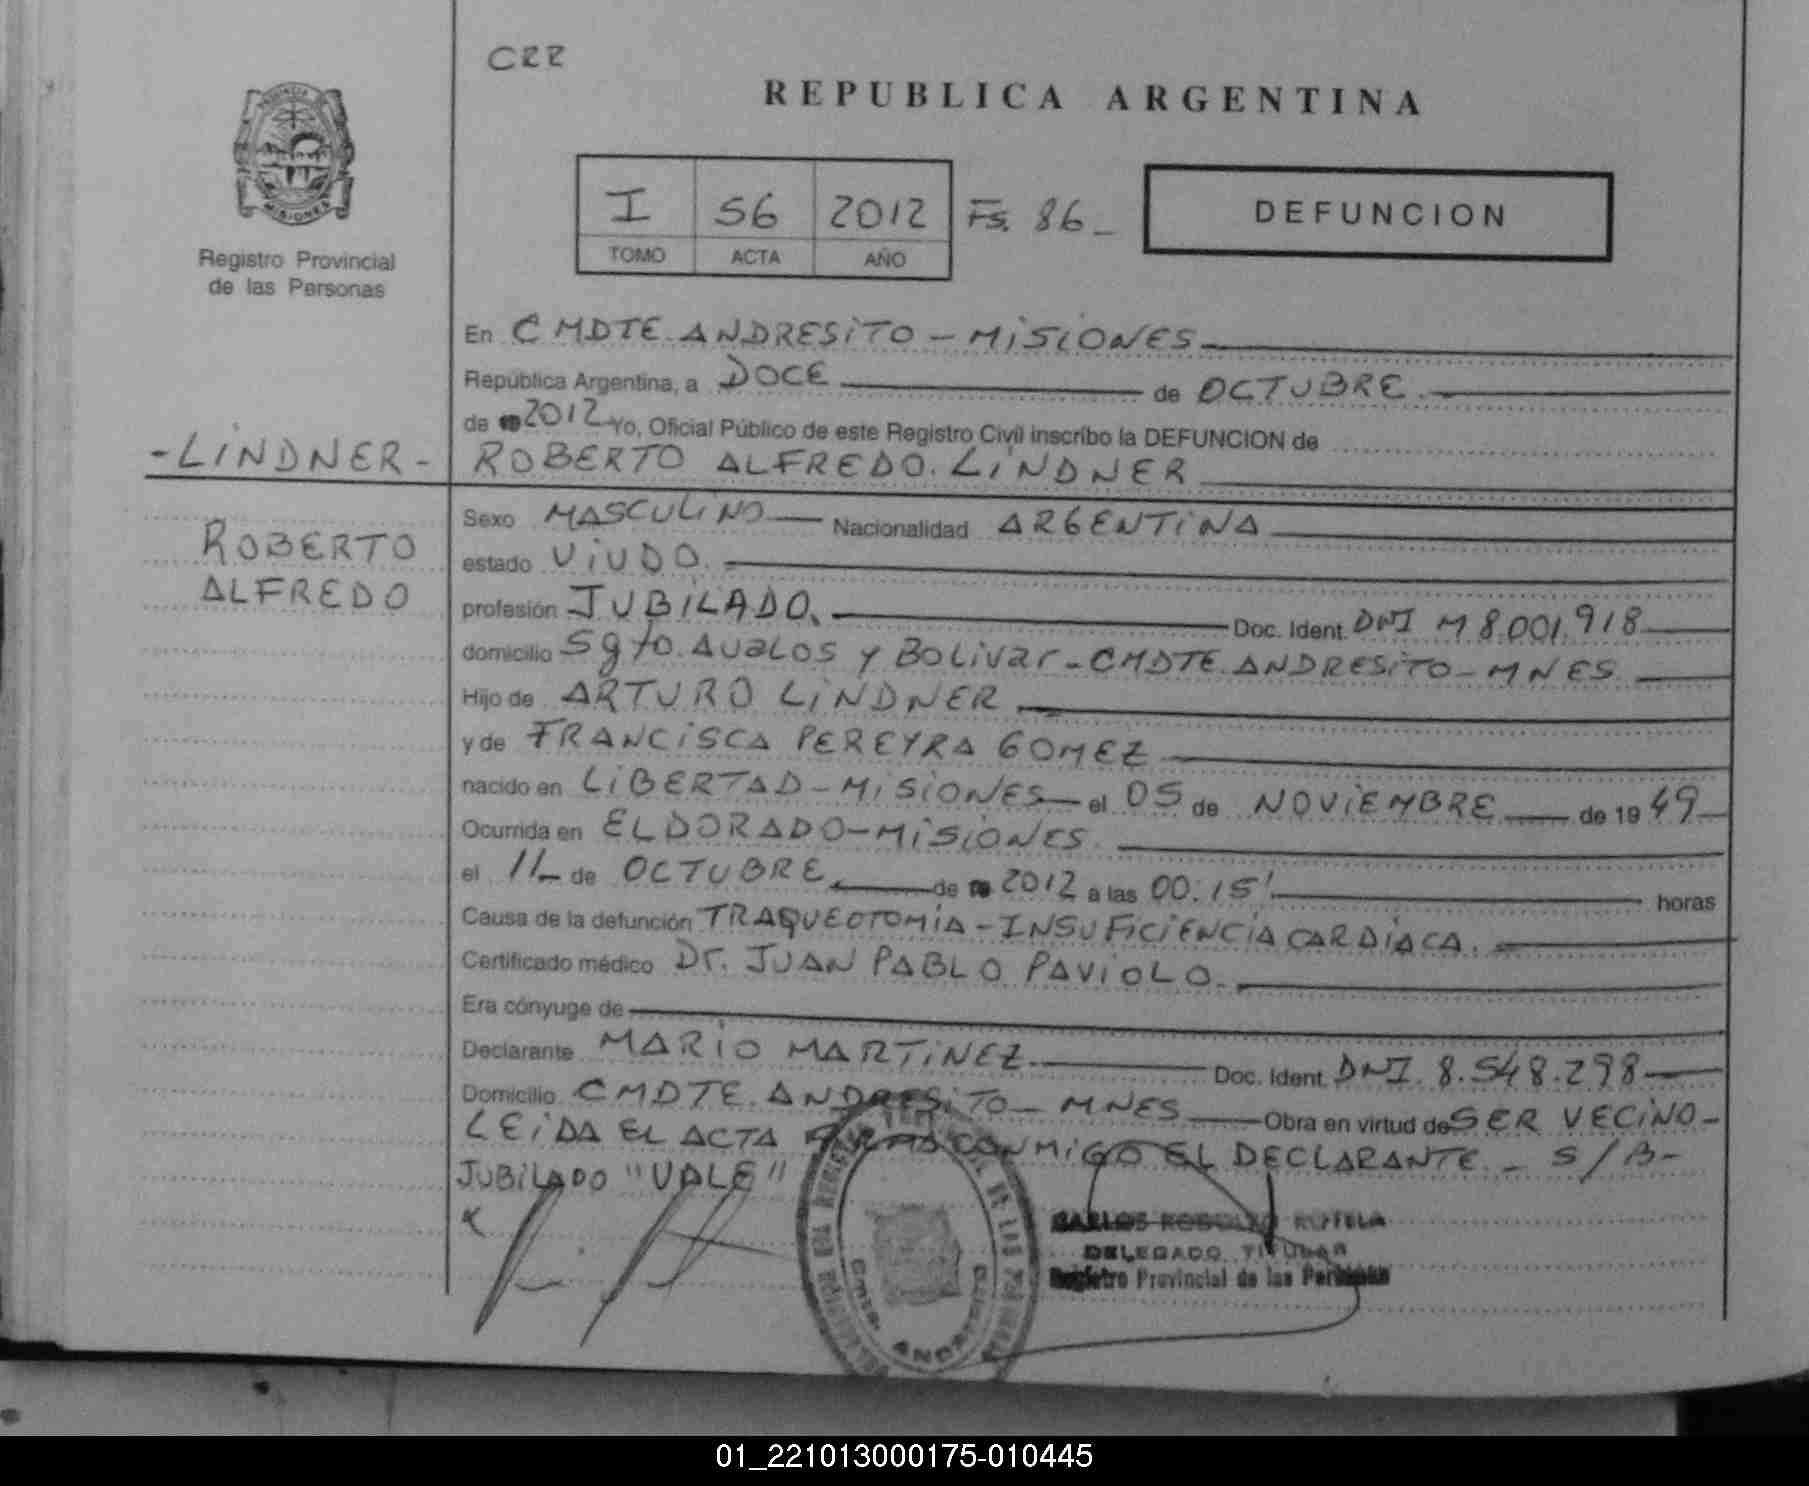 CRR
REPUBLICA ARGENTINA
I 56 2012 Fs. 86_
TOMO ACTA AÑO
DEFUNCION
PROVINCIA DE
MISIONES
Registro Provincial
de las Personas
En CMDTE. ANDRESITO - MISIONES
República Argentina, a DOCE de OCTUBRE
de 2012 Yo, Oficial Público de este Registro Civil inscribo la DEFUNCION de
- LINDNER - ROBERTO ALFREDO. LINDNER
ROBERTO
ALFREDO
Sexo MASCULINO Nacionalidad ARGENTINA
estado VIUDO.
profesión JUBILADO. Doc. Ident. DNI M 8.001.918
domicilio Sgto. AVALOS Y BOLIVAR - CMDTE. ANDRESITO - MNES
Hijo de ARTURO LINDNER
y de FRANCISCA PEREYRA GOMEZ
nacido en LIBERTAD - MISIONES el 05 de NOVIEMBRE de 19 49
Ocurrida en ELDORADO - MISIONES
el 11 de OCTUBRE de 2012 a las 00:15' horas
Causa de la defunción TRAQUEOTOMIA - INSUFICIENCIA CARDIACA.
Certificado médico Dr. JUAN PABLO PAVIOLO.
Era cónyuge de
Declarante MARIO MARTINEZ Doc. Ident. DNI. 8.548.298
Domicilio CMDTE. ANDRESITO - MNES Obra en virtud de SER VECINO -
LEIDA EL ACTA FIRMA CONMIGO EL DECLARANTE - S/B -
JUBILADO "VALE"
CARLOS RODOLFO ROTELA
DELEGADO TITULAR
Registro Provincial de las Personas
Cmte. ANDRESITO
01_221013000175-010445